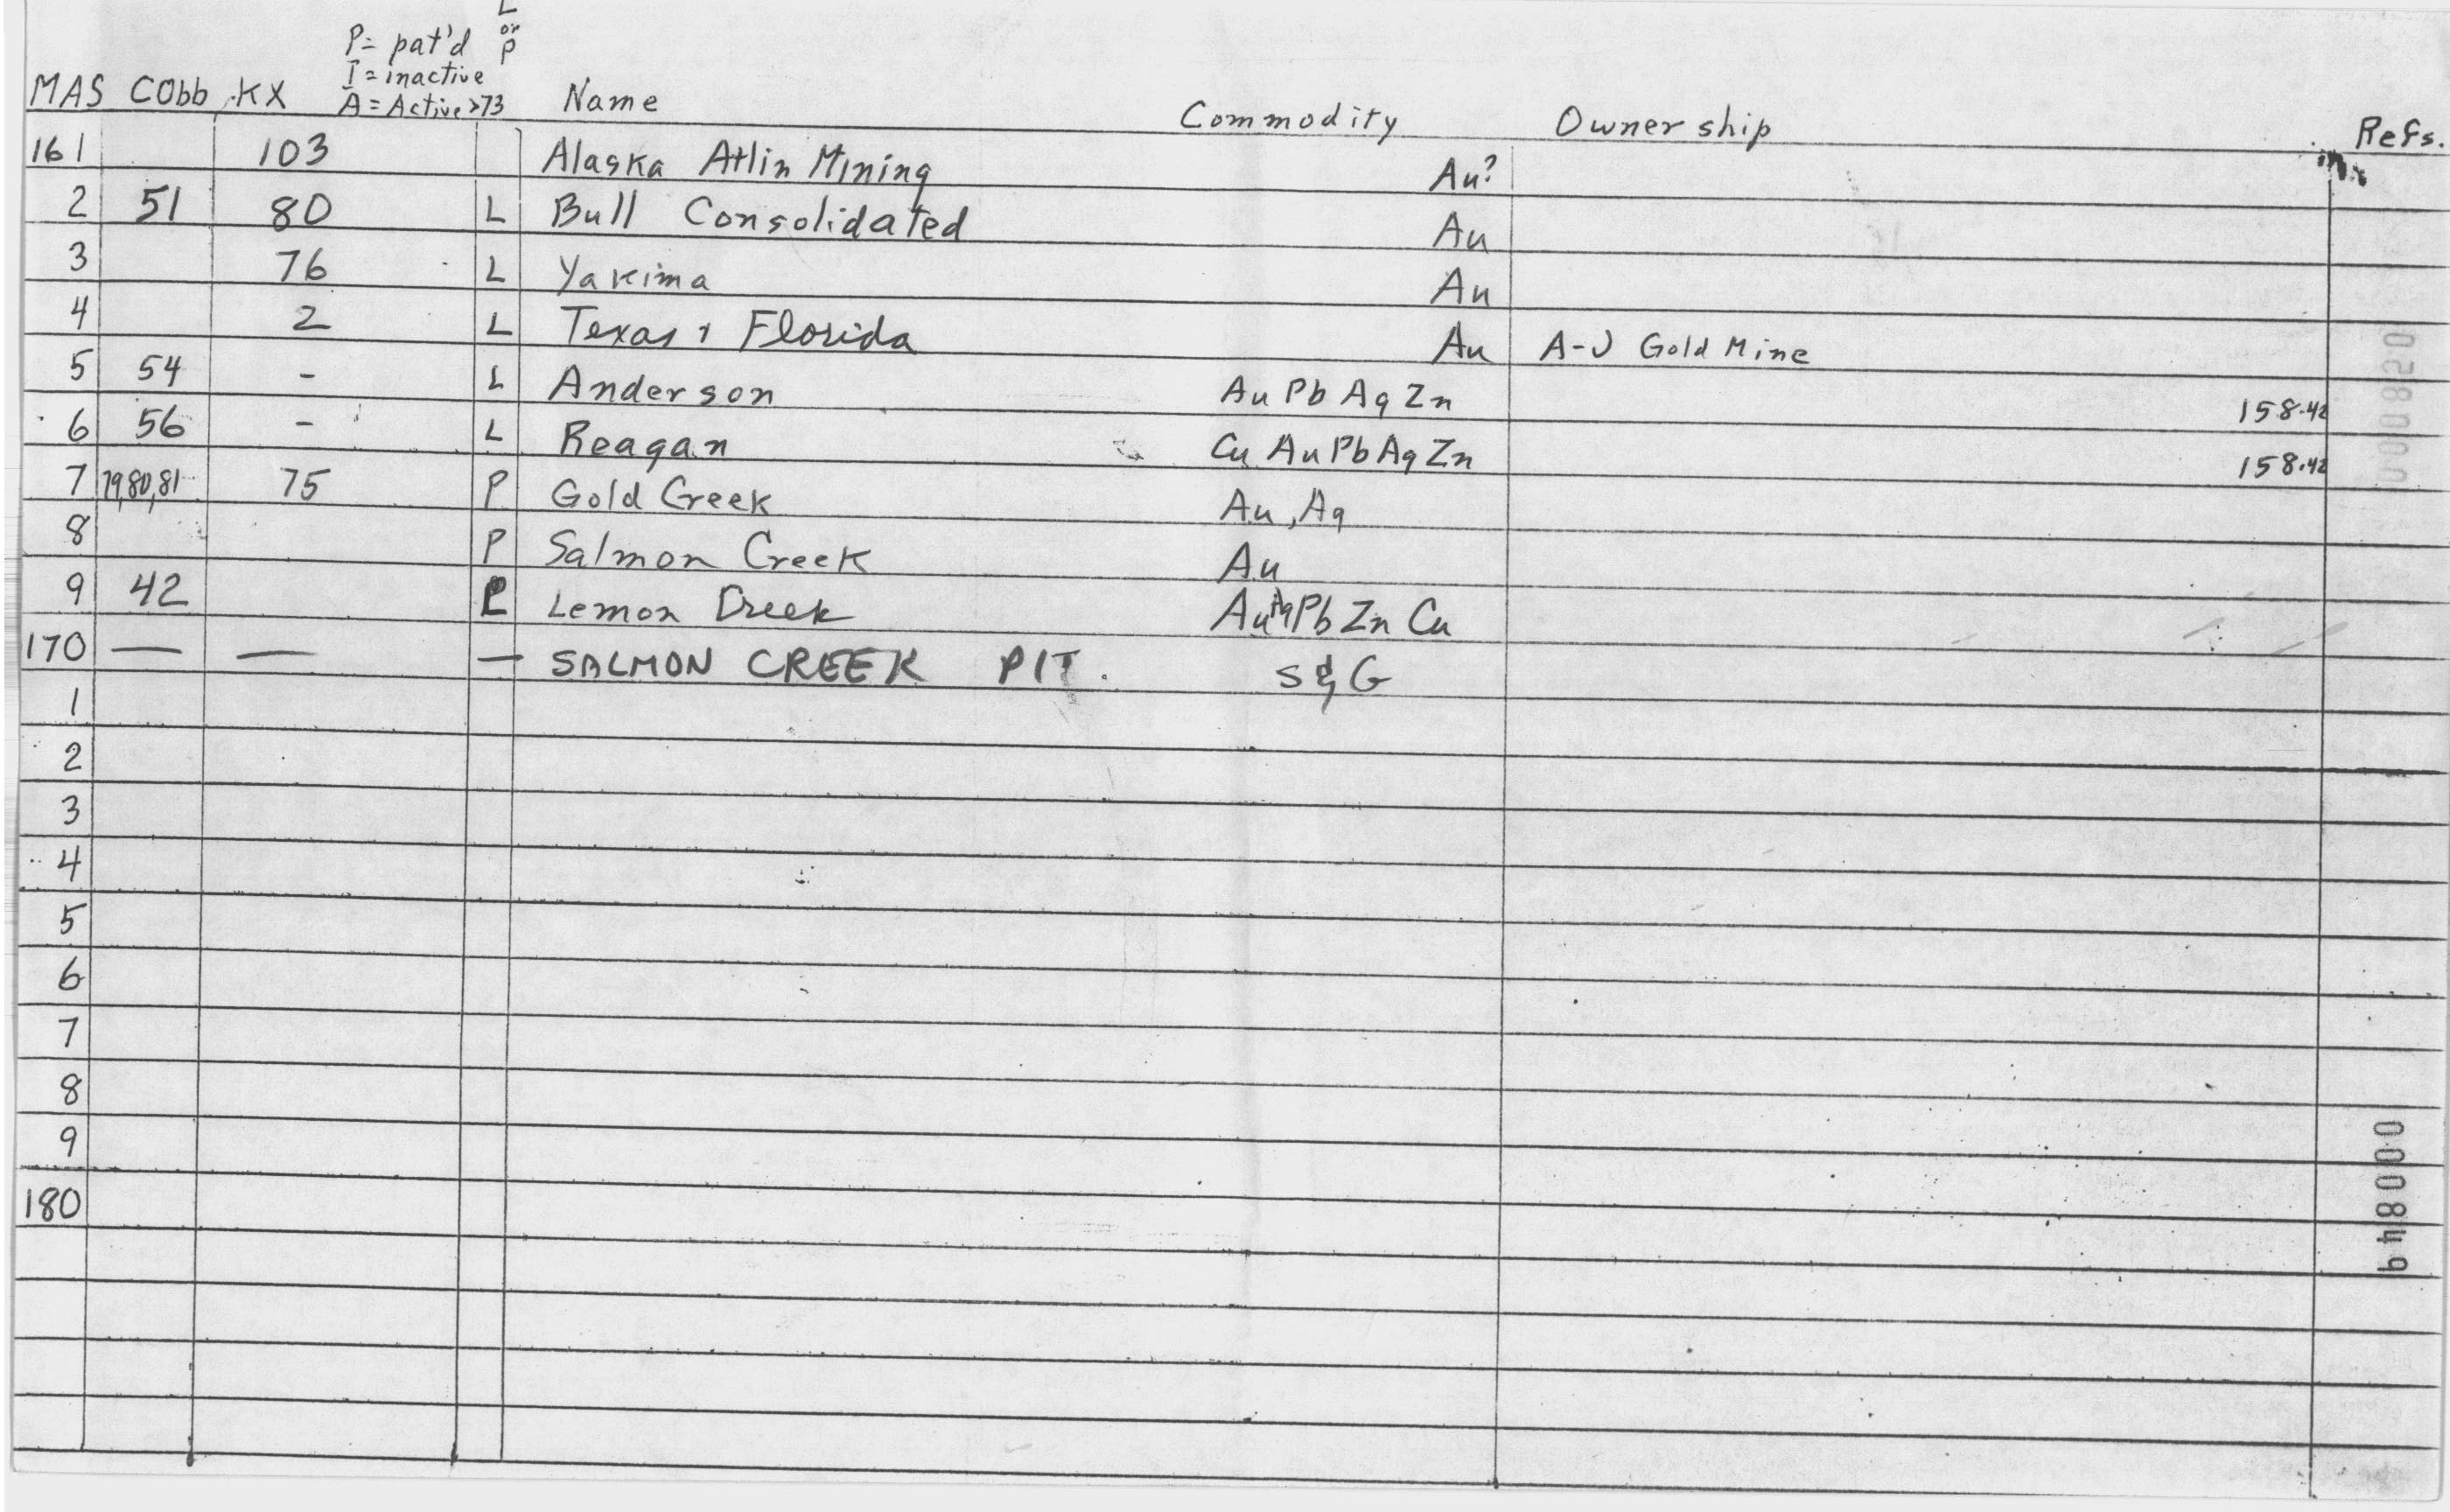 L
or
P
P= pat'd
I = inactive
A = Active >73
MAS Cobb KX Name Commodity Ownership Refs.
161 103 Alaska Atlin Mining Au?
2 51 80 L Bull Consolidated Au
3 76 L Yakima Au
4 2 L Texas & Florida Au A-J Gold Mine
5 54 - L Anderson Au Pb Ag Zn 158.42
6 56 - L Reagan Cu Au Pb Ag Zn 158.42
7 79,80,81 75 P Gold Creek Au, Ag
8 P Salmon Creek Au
9 42 Lemon Dreek Au Ag Pb Zn Cu
170 — — — SALMON CREEK PIT. S & G
1
2
3
4
5
6
7
8
9
180
000849